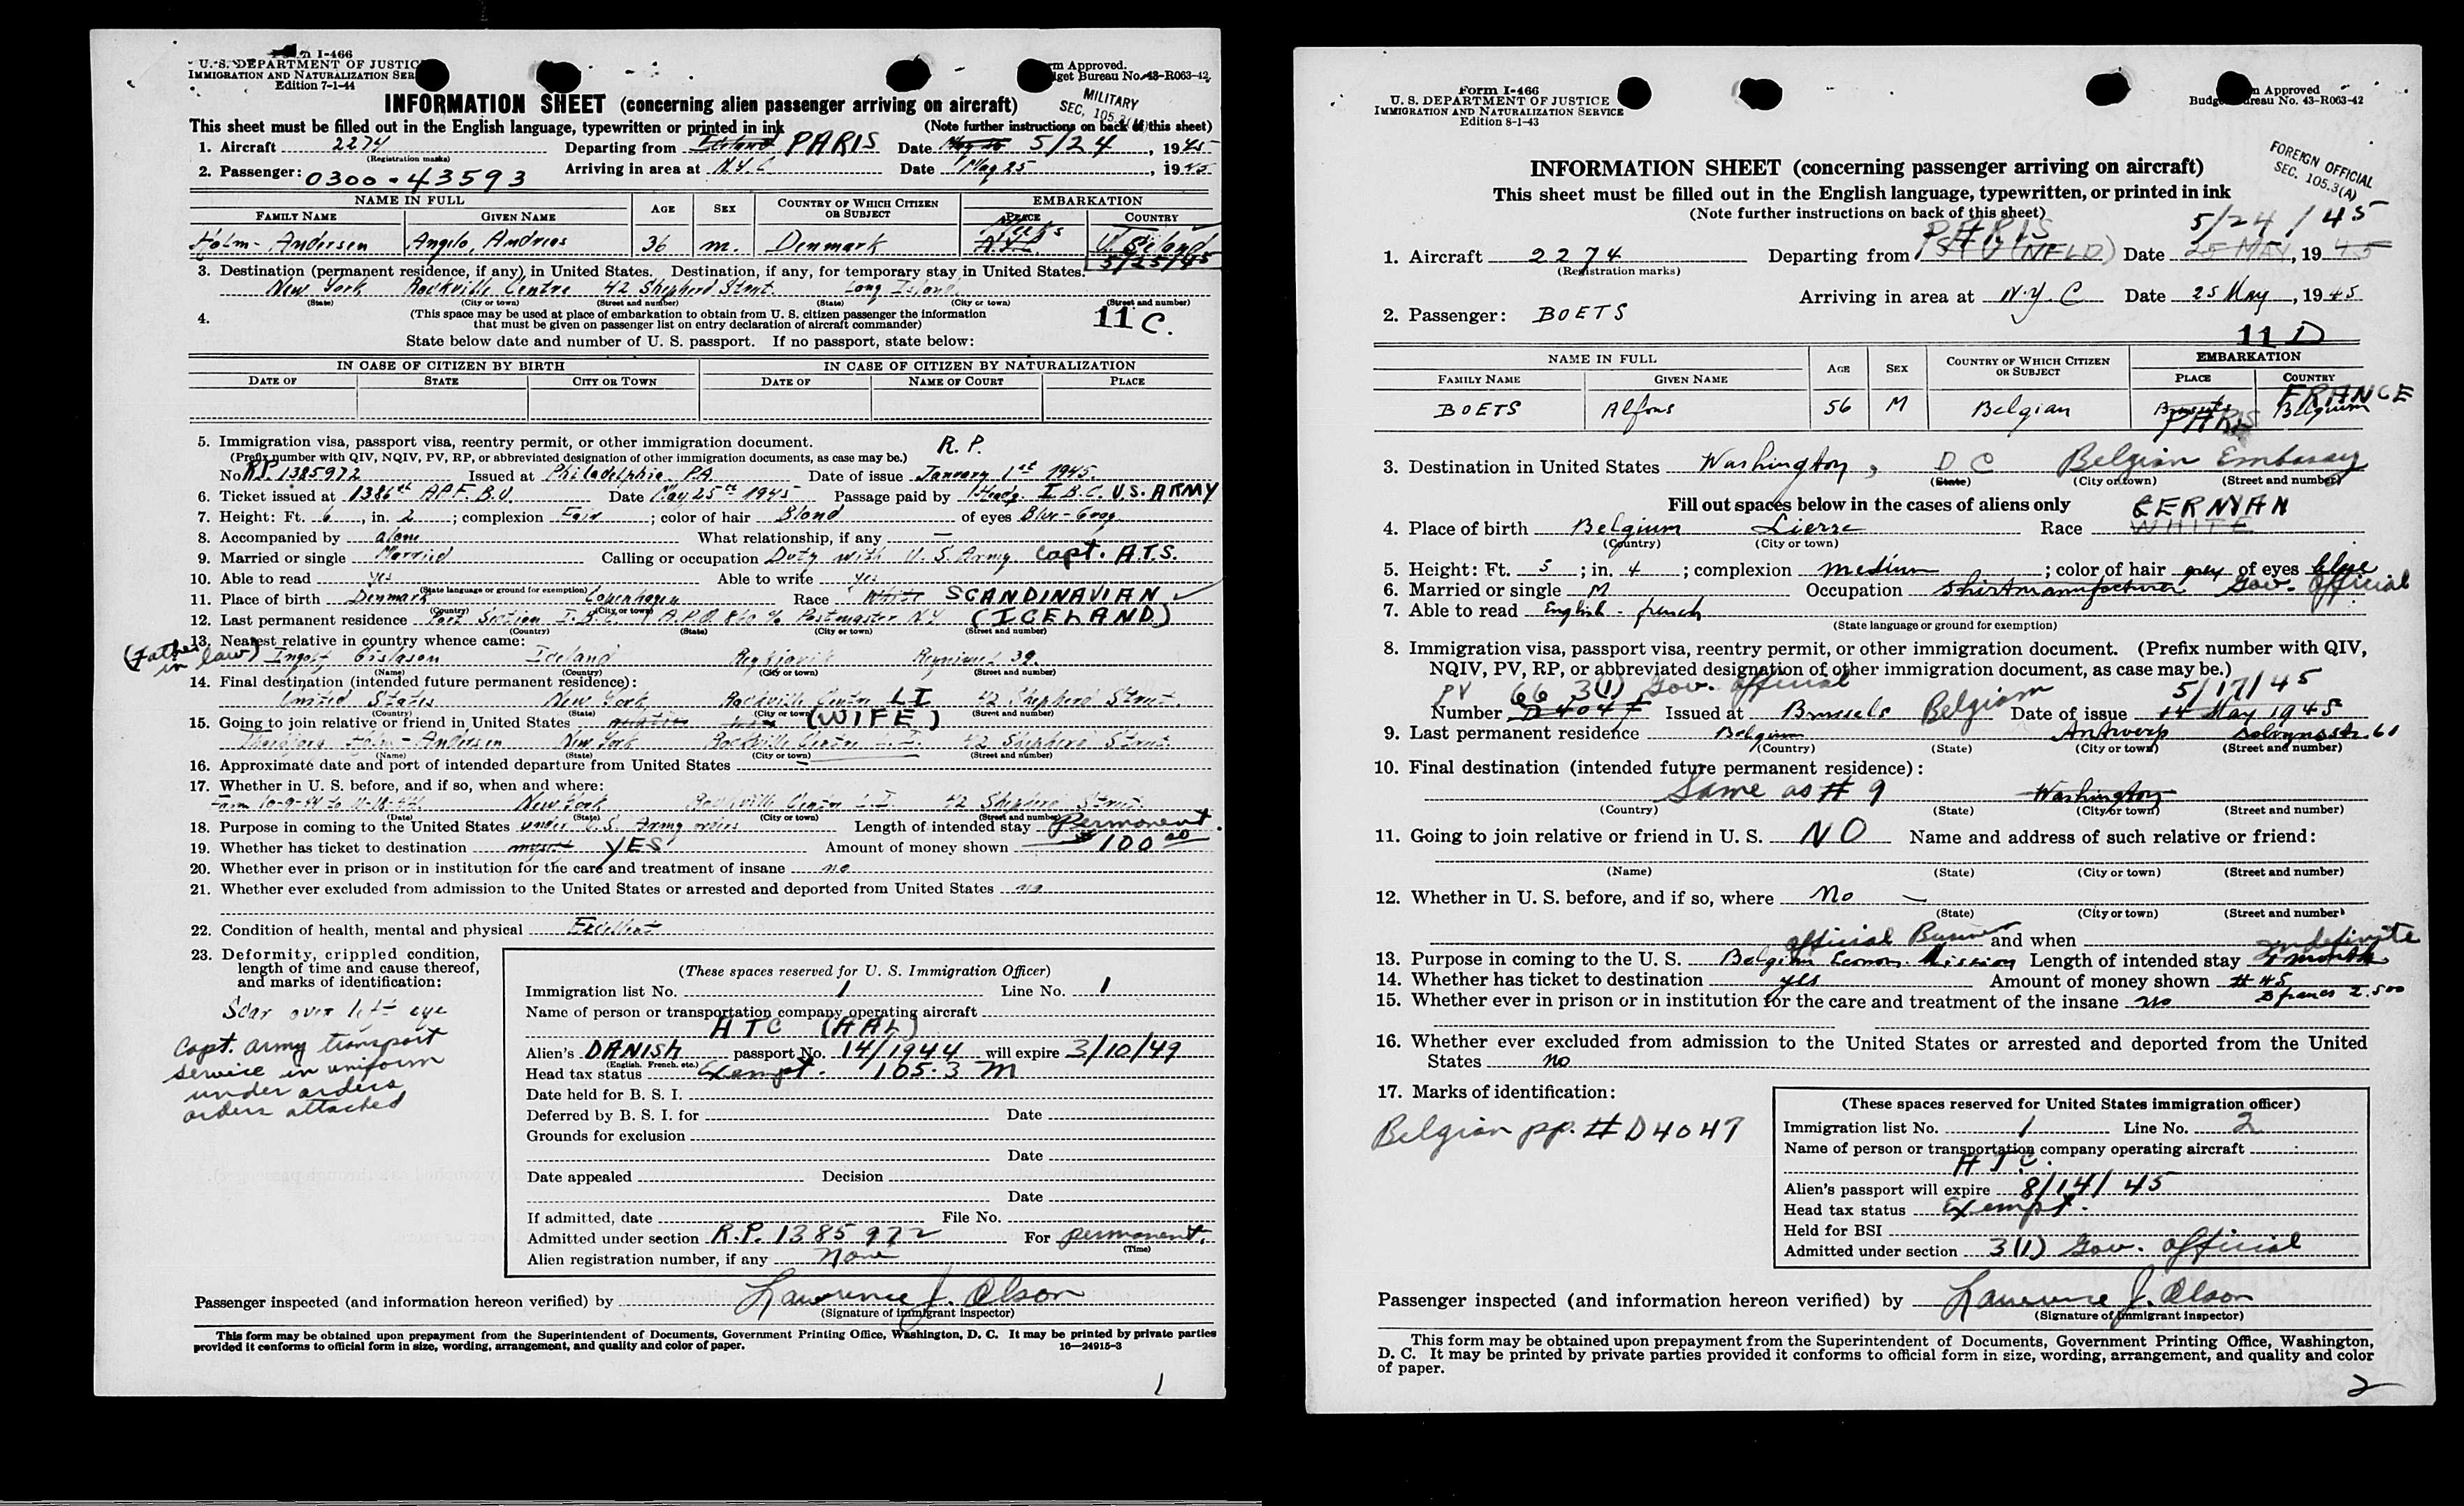 I-466
U. S. DEPARTMENT OF JUSTICE
IMMIGRATION AND NATURALIZATION SER
Edition 7-1-44
m Approved.
get Bureau No. 43-R063-42.
INFORMATION SHEET (concerning alien passenger arriving on aircraft)
MILITARY
SEC. 105.3
This sheet must be filled out in the English language, typewritten or printed in ink
(Note further instructions on back of this sheet)
1. Aircraft 2274 Departing from Iceland PARIS Date 5/24, 1945
(Registration marks)
2. Passenger: 0300-43593 Arriving in area at N.Y.C Date May 25, 1945
NAME IN FULL AGE SEX COUNTRY OF WHICH CITIZEN OR SUBJECT EMBARKATION
FAMILY NAME GIVEN NAME PLACE COUNTRY
Holm-Andersen Angilo, Andrias 36 m. Denmark Meeks N.Y.C. Iceland
5/25/45
3. Destination (permanent residence, if any) in United States. Destination, if any, for temporary stay in United States.
New York Rockville Centre 42 Shepherd Street. Long Island
(State) (City or town) (Street and number) (State) (City or town) (Street and number)
4. (This space may be used at place of embarkation to obtain from U. S. citizen passenger the information
that must be given on passenger list on entry declaration of aircraft commander)
11 C.
State below date and number of U. S. passport. If no passport, state below:
IN CASE OF CITIZEN BY BIRTH IN CASE OF CITIZEN BY NATURALIZATION
DATE OF STATE CITY OR TOWN DATE OF NAME OF COURT PLACE
5. Immigration visa, passport visa, reentry permit, or other immigration document. R. P.
(Prefix number with QIV, NQIV, PV, RP, or abbreviated designation of other immigration documents, as case may be.)
No. RP 1385972 Issued at Philadelphia, PA Date of issue January 1st 1945.
6. Ticket issued at 1386th A.P.F. B.U. Date May 25th 1945 Passage paid by Headq. I.B.C. U.S. ARMY
7. Height: Ft. 6, in. 2; complexion Fair; color of hair Blond of eyes Blue-Gray
8. Accompanied by alone What relationship, if any —
9. Married or single Married Calling or occupation Duty with U. S. Army Capt. A.T.S.
10. Able to read yes Able to write yes
(State language or ground for exemption)
11. Place of birth Denmark Copenhagen Race White SCANDINAVIAN
(Country) (City or town)
12. Last permanent residence Port Section I.B.C. A.P.O. 860 % Postmaster N.Y (ICELAND)
(Country) (State) (City or town) (Street and number)
13. Nearest relative in country whence came:
(Father in law) Ingolf Gislason Iceland Reykjavik Reynimel 39.
(Name) (Country) (City or town) (Street and number)
14. Final destination (intended future permanent residence):
United States New York, Rockville Centre LI 42 Shepherd Street.
(Country) (State) (City or town) (Street and number)
15. Going to join relative or friend in United States (WIFE)
Holm-Andersen New York Rockville Centre L.I. 42 Shepherd Street.
(Name) (State) (City or town) (Street and number)
16. Approximate date and port of intended departure from United States —
17. Whether in U. S. before, and if so, when and where:
From 10-9-44 to 11-18-44 New York Rockville Centre L.I. 42 Shepherd Street
(Date) (State) (City or town) (Street and number)
18. Purpose in coming to the United States under U.S. Army orders Length of intended stay Permanent.
19. Whether has ticket to destination YES Amount of money shown $100.00
20. Whether ever in prison or in institution for the care and treatment of insane no
21. Whether ever excluded from admission to the United States or arrested and deported from United States no
22. Condition of health, mental and physical Excellent
23. Deformity, crippled condition,
length of time and cause thereof,
and marks of identification:
Scar over left eye
Capt. army transport
service in uniform
under orders
orders attached
(These spaces reserved for U. S. Immigration Officer)
Immigration list No. 1 Line No. 1
Name of person or transportation company operating aircraft
ATC (AAL)
Alien's DANISH passport No. 14/1944 will expire 3/10/49
(English, French, etc.)
Head tax status Exempt. 105.3 M
Date held for B. S. I.
Deferred by B. S. I. for Date
Grounds for exclusion
Date
Date appealed Decision
Date
If admitted, date File No.
Admitted under section R.P. 1385972 For permanent.
(Time)
Alien registration number, if any None
Passenger inspected (and information hereon verified) by Lawrence J. Olson
(Signature of immigrant inspector)
This form may be obtained upon prepayment from the Superintendent of Documents, Government Printing Office, Washington, D. C. It may be printed by private parties
provided it conforms to official form in size, wording, arrangement, and quality and color of paper. 16—24915-3
1
Form I-466
U. S. DEPARTMENT OF JUSTICE
IMMIGRATION AND NATURALIZATION SERVICE
Edition 8-1-43
m Approved
Budget Bureau No. 43-R063-42
FOREIGN OFFICIAL
SEC. 105.3(A)
INFORMATION SHEET (concerning passenger arriving on aircraft)
This sheet must be filled out in the English language, typewritten, or printed in ink
(Note further instructions on back of this sheet)
PARIS 5/24/45
1. Aircraft 2274 Departing from (NFLD) Date 25 MAY, 1945
(Registration marks)
Arriving in area at N.Y.C Date 25 May, 1945
2. Passenger: BOETS
11 D
NAME IN FULL AGE SEX COUNTRY OF WHICH CITIZEN OR SUBJECT EMBARKATION
FAMILY NAME GIVEN NAME PLACE COUNTRY
FRANCE
BOETS Alfons 56 M Belgian Brussels Belgium
PARIS
3. Destination in United States Washington, D C Belgian Embassy
(State) (City or town) (Street and number)
Fill out spaces below in the cases of aliens only
GERMAN
4. Place of birth Belgium Lierre Race WHITE
(Country) (City or town)
5. Height: Ft. 5; in. 4; complexion medium; color of hair grey of eyes blue
6. Married or single M Occupation Shirtmanufacturer Gov. Official
7. Able to read English - french
(State language or ground for exemption)
8. Immigration visa, passport visa, reentry permit, or other immigration document. (Prefix number with QIV,
NQIV, PV, RP, or abbreviated designation of other immigration document, as case may be.)
PV 66 3(1) Gov. Official 5/17/45
Number D4047 Issued at Brussels Belgium Date of issue 14 May 1945
9. Last permanent residence Belgium Antwerp 61
(Country) (State) (City or town) (Street and number)
10. Final destination (intended future permanent residence):
Same as # 9 Washington
(Country) (State) (City or town) (Street and number)
11. Going to join relative or friend in U. S. NO Name and address of such relative or friend:
(Name) (State) (City or town) (Street and number)
12. Whether in U. S. before, and if so, where No —
(State) (City or town) (Street and number)
and when
Official Business indefinite
13. Purpose in coming to the U. S. Belgian Econom. Mission Length of intended stay months
14. Whether has ticket to destination yes Amount of money shown # 45
15. Whether ever in prison or in institution for the care and treatment of the insane no B francs 2.500
16. Whether ever excluded from admission to the United States or arrested and deported from the United
States no
17. Marks of identification:
Belgian pp. # D4047
(These spaces reserved for United States immigration officer)
Immigration list No. 1 Line No. 2
Name of person or transportation company operating aircraft
ATC.
Alien's passport will expire 8/14/45
Head tax status Exempt.
Held for BSI
Admitted under section 3(1) Gov. Official
Passenger inspected (and information hereon verified) by Lawrence J. Olson
(Signature of immigrant inspector)
This form may be obtained upon prepayment from the Superintendent of Documents, Government Printing Office, Washington,
D. C. It may be printed by private parties provided it conforms to official form in size, wording, arrangement, and quality and color
of paper.
2